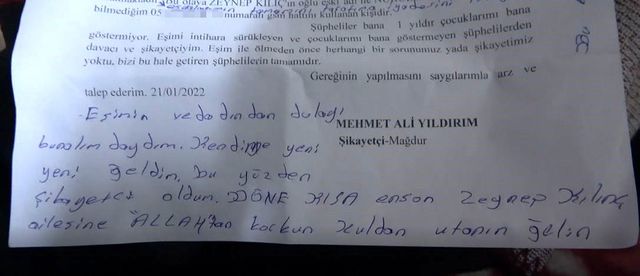 Bu olaya ZEYNEP KILIÇ'ın oğlu eski
bilmediğim 05 numaralı gsm hattını kullanan kişidir.
Şüpheliler bana 1 yıldır çocuklarımı bana
göstermiyor. Eşimi intihara sürükleyen ve çocuklarımı bana göstermeyen şüphelilerden
davacı ve şikayetçiyim. Eşim ile ölmeden önce herhangi bir sorunumuz yada şikayetimiz
yoktu, bizi bu hale getiren şüphelilerin tamamıdır.
Gereğinin yapılmasını saygılarımla arz ve
talep ederim. 21/01/2022
Eşimin vedadından dulayı
MEHMET ALİ YILDIRIM
bunalımdaydım. Kendime yeni
Şikayetçi-Mağdur
yeni geldin, bu yüzden
şikayetci oldum. DÖNE KISA enson Zeynep Kılınç
ailesine ALLAH'tan korkun kuldan utanın gelin